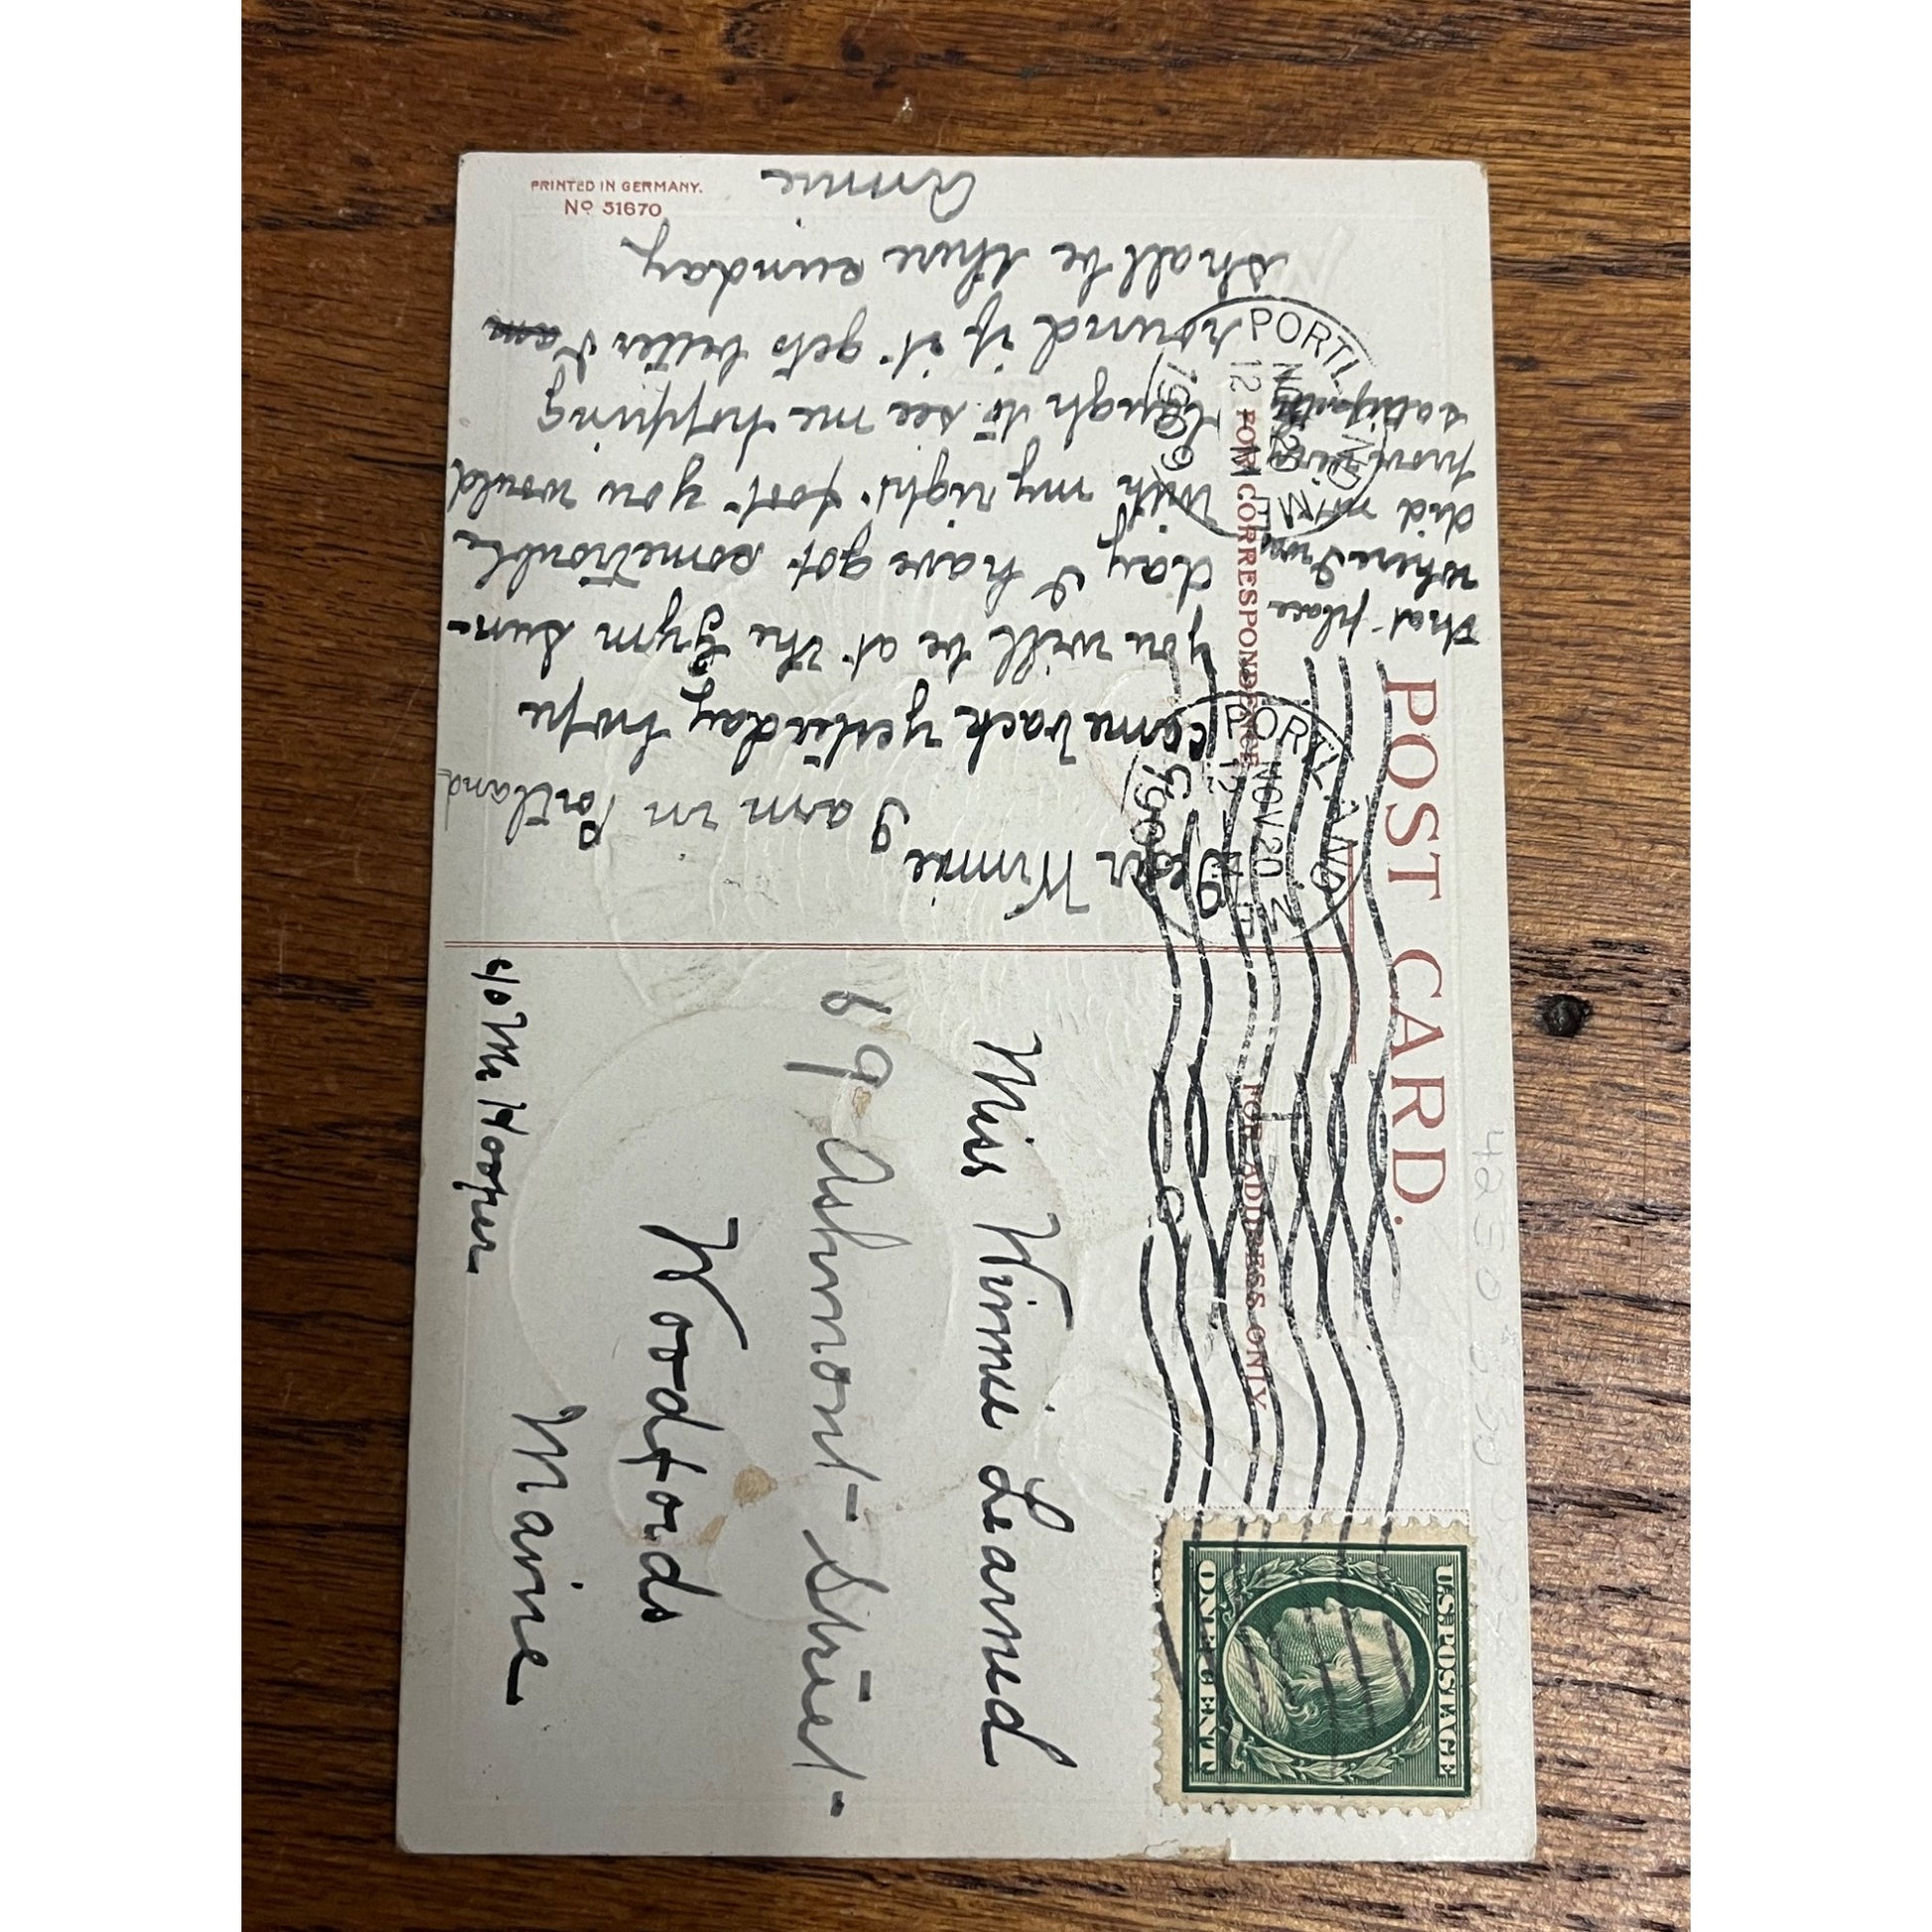 POST CARD.
FOR CORRESPONDENCE
FOR ADDRESS ONLY
PORTLAND
NOV 20
12 M
1909
ME.
PORTLAND
NOV 20
12 M
1909
ME.
U.S. POSTAGE
ONE CENT
Dear Winnie
I am in Portland
came back yesterday hope
you will be at the Gym Sun-
day I have got some trouble
with my right foot you would
laugh to see me hopping
round if it gets better I am
shall be there sunday
Annie
that place
where I was
did not
prove
Miss Winnie Learned
69 Ashmont Street
Woodfords
Maine
c/o Mr. Hooper
PRINTED IN GERMANY.
No 51670